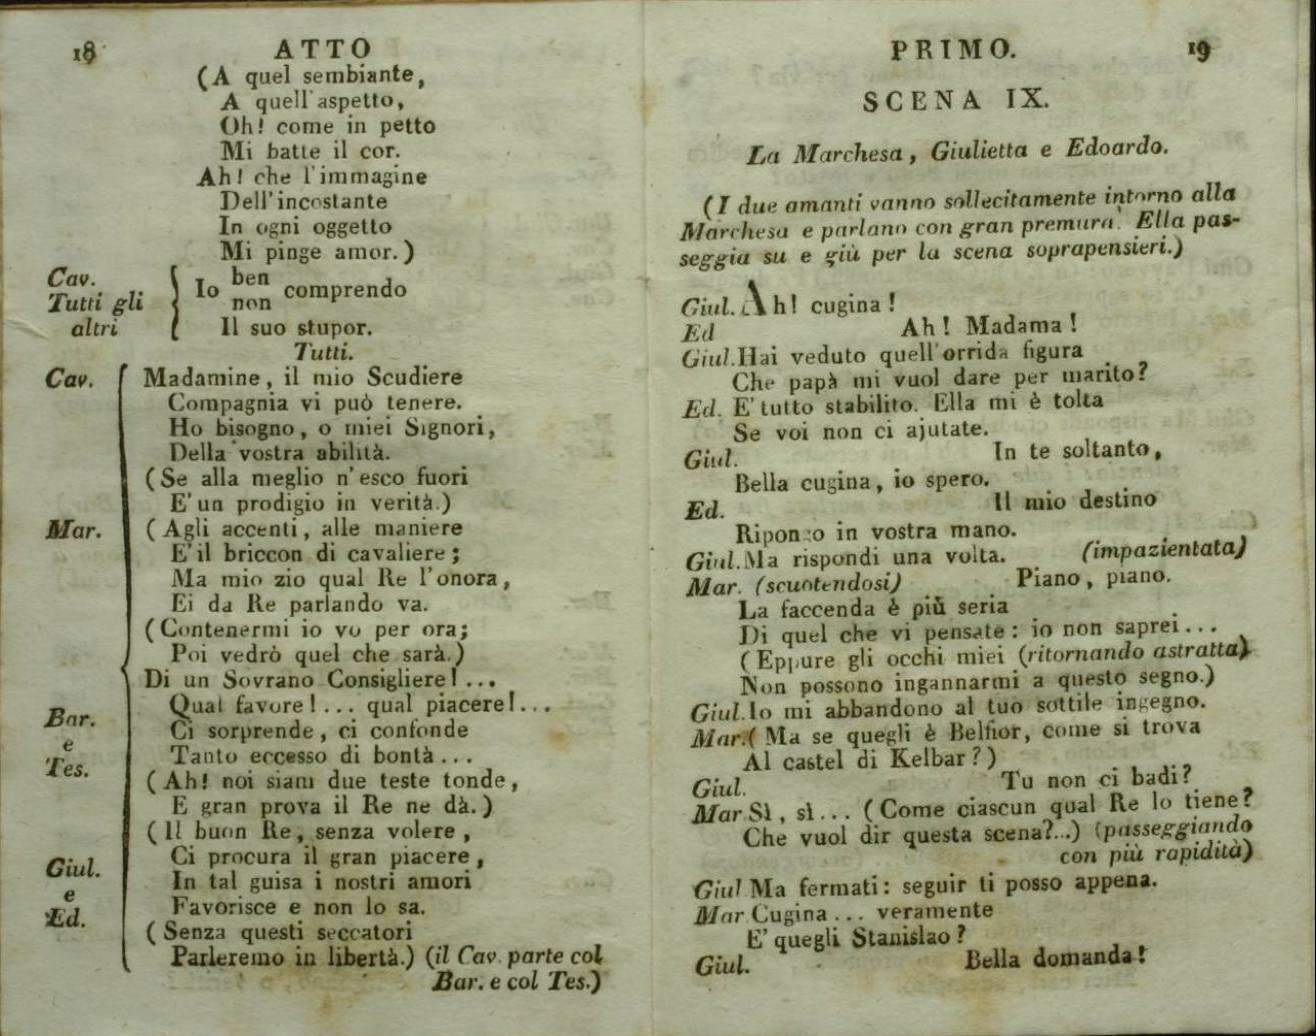 18 ATTO
(A quel sembiante,
A quell'aspetto,
Oh! come in petto
Mi batte il cor.
Ah! che l'immagine
Dell'incostante
In ogni oggetto
Mi pinge amor.)
Cav. Io ben comprendo
Tutti gli altri non
Il suo stupor.
Tutti.
Cav. Madamine, il mio Scudiere
Compagnia vi può tenere.
Ho bisogno, o miei Signori,
Della vostra abilità.
(Se alla meglio n'esco fuori
E' un prodigio in verità.)
Mar. (Agli accenti, alle maniere
E' il briccon di cavaliere;
Ma mio zio qual Re l'onora,
Ei da Re parlando va.
(Contenermi io vo per ora;
Poi vedrò quel che sarà.)
Di un Sovrano Consigliere!...
Bar. e Tes. Qual favore!... qual piacere!...
Ci sorprende, ci confonde
Tanto eccesso di bontà...
(Ah! noi siam due teste tonde,
E gran prova il Re ne dà.)
(Il buon Re, senza volere,
Giul. e Ed. Ci procura il gran piacere,
In tal guisa i nostri amori
Favorisce e non lo sa.
(Senza questi seccatori
Parleremo in libertà.) (il Cav. parte col
Bar. e col Tes.)
PRIMO. 19
SCENA IX.
La Marchesa, Giulietta e Edoardo.
(I due amanti vanno sollecitamente intorno alla
Marchesa e parlano con gran premura. Ella pas-
seggia su e giù per la scena soprapensieri.)
Giul. Ah! cugina!
Ed Ah! Madama!
Giul. Hai veduto quell'orrida figura
Che papà mi vuol dare per marito?
Ed. E' tutto stabilito. Ella mi è tolta
Se voi non ci ajutate.
Giul. In te soltanto,
Bella cugina, io spero.
Ed. Il mio destino
Ripongo in vostra mano.
Giul. Ma rispondi una volta. (impazientata)
Mar. (scuotendosi) Piano, piano.
La faccenda è più seria
Di quel che vi pensate: io non saprei...
(Eppure gli occhi miei (ritornando astratta)
Non possono ingannarmi a questo segno.)
Giul. Io mi abbandono al tuo sottile ingegno.
Mar. (Ma se quegli è Belfior, come si trova
Al castel di Kelbar?)
Giul. Tu non ci badi?
Mar Sì, sì... (Come ciascun qual Re lo tiene?
Che vuol dir questa scena?..) (passeggiando
con più rapidità)
Giul Ma fermati: seguir ti posso appena.
Mar Cugina... veramente
E' quegli Stanislao?
Giul. Bella domanda!